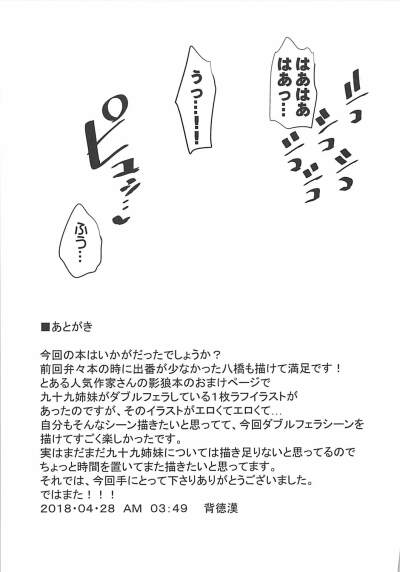 はあはあ
はあっ…
ジュッ
ジュッ
ジュッ
ジュッ
うっ…!!
ピュンー…
ふう…
■あとがき
今回の本はいかがだったでしょうか？
前回弁々本の時に出番が少なかった八橋も描けて満足です！
とある人気作家さんの影狼本のおまけページで
九十九姉妹がダブルフェラしている1枚ラフイラストが
あったのですが、そのイラストがエロくてエロくて…
自分もそんなシーン描きたいと思ってて、今回ダブルフェラシーンを
描けてすごく楽しかったです。
実はまだまだ九十九姉妹については描き足りないと思ってるので
ちょっと時間を置いてまた描きたいと思ってます。
それでは、今回手にとって下さりありがとうございました。
ではまた！！！
2018・04・28　AM　03：49　　背徳漢